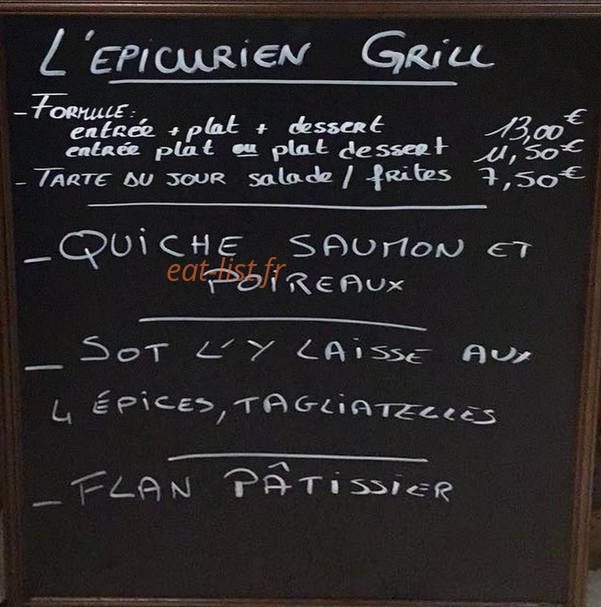 L'EPICURIEN GRILL
- FORMULE:
entrée + plat + dessert 13,00€
entrée plat ou plat dessert 11,50€
- TARTE DU JOUR salade / frites 7,50€
- QUICHE SAUMON ET
eat-list.fr
POIREAUX
- SOT L'Y LAISSE AUX
4 ÉPICES, TAGLIATELLES
- FLAN PÂTISSIER